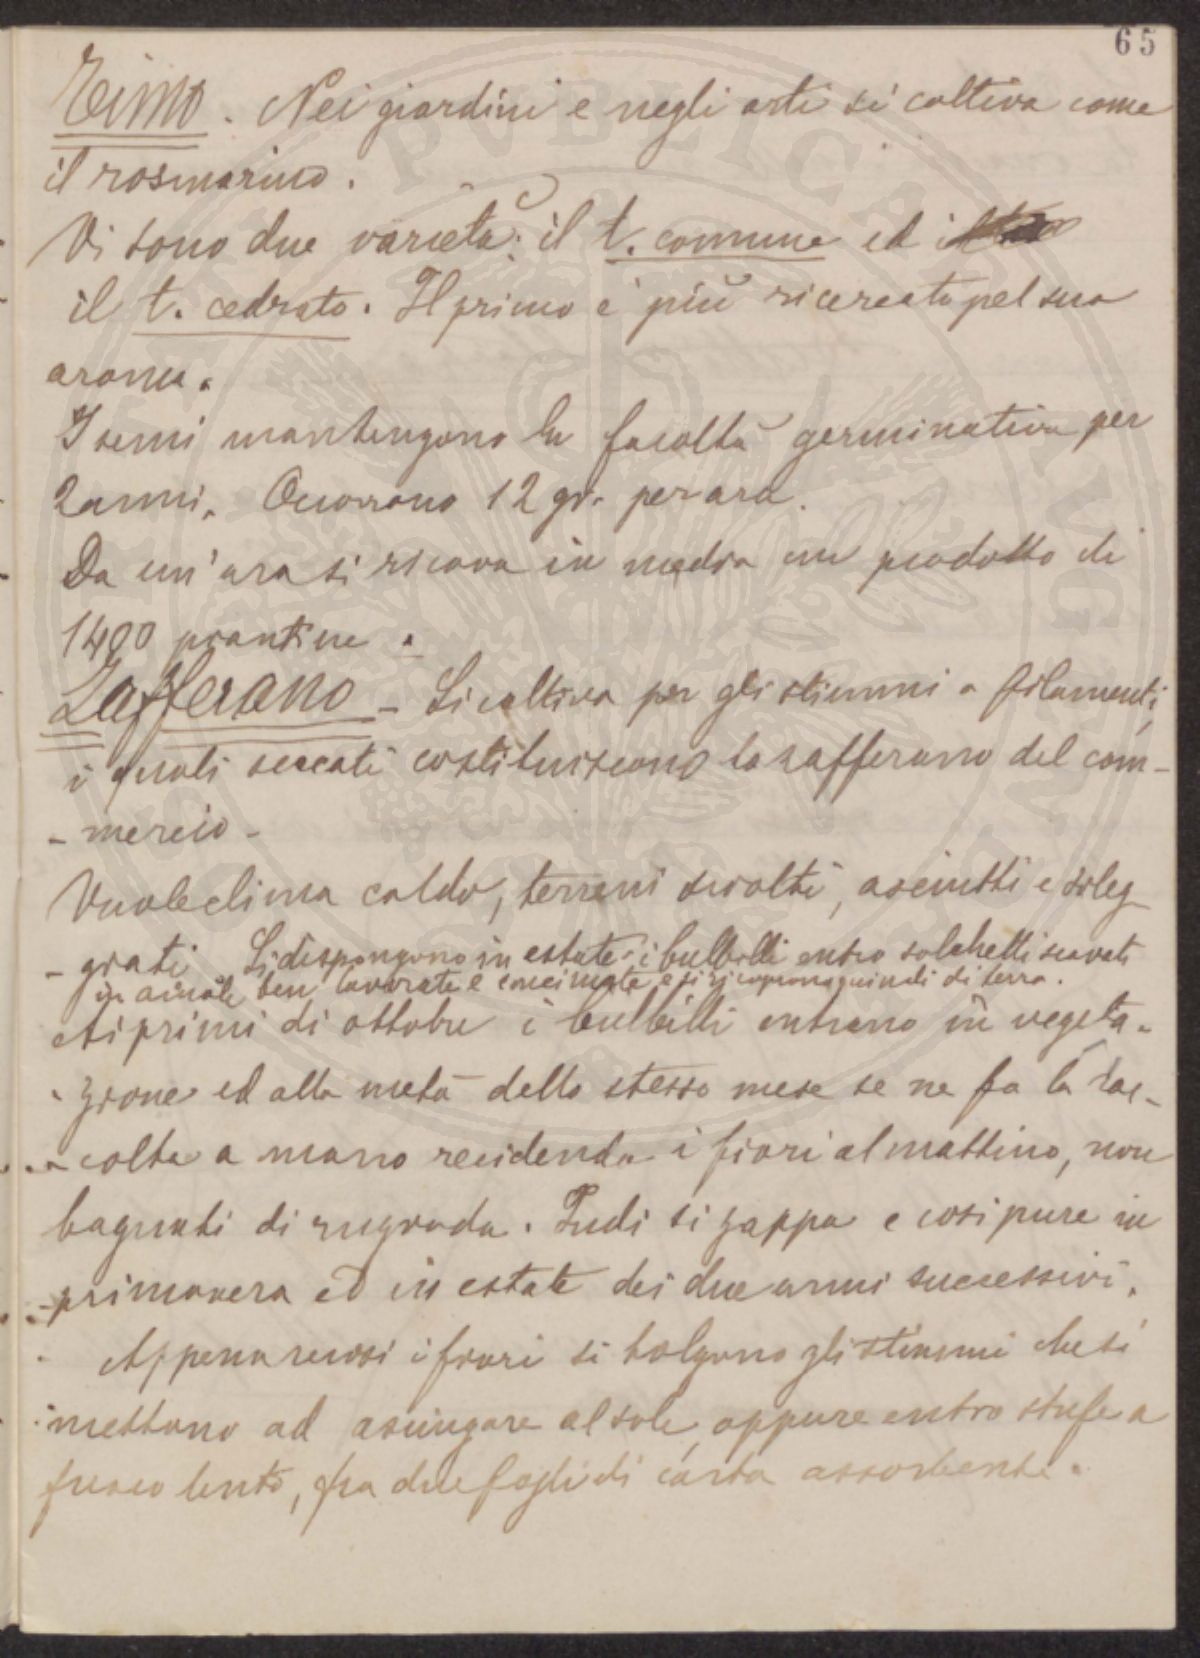 65
Timo. Nei giardini e negli orti si coltiva come
il rosmarino.
Vi sono due varietà: il t. comune ed il
il t. cedrato. Il primo è più ricercato pel suo
aroma.
I semi mantengono la facoltà germinativa per
2 anni. Occorrono 12 gr. per ara.
Da un'ara si ricava in media un prodotto di
1400 piantine.
Zafferano - Si coltiva per gli stimmi o filamenti,
i quali seccati costituiscono lo zafferano del com-
- mercio -
Vuole clima caldo, terreni sciolti, asciutti e soleg-
- giati. Si dispongono in estate i bulbilli entro solchetti scavati
in aiuole ben lavorate e concimate e si ricoprono quindi di terra.
Ai primi di ottobre i bulbilli entrano in vegeta-
- zione ed alla metà dello stesso mese se ne fa la rac-
- colta a mano recidendo i fiori al mattino, non
bagnati di rugiada. Indi si zappa e così pure in
primavera ed in estate dei due anni successivi.
Appena recisi i fiori si tolgono gli stimmi che si
mettono ad asciugare al sole, oppure entro stufe a
fuoco lento, fra due fogli di carta assorbente.